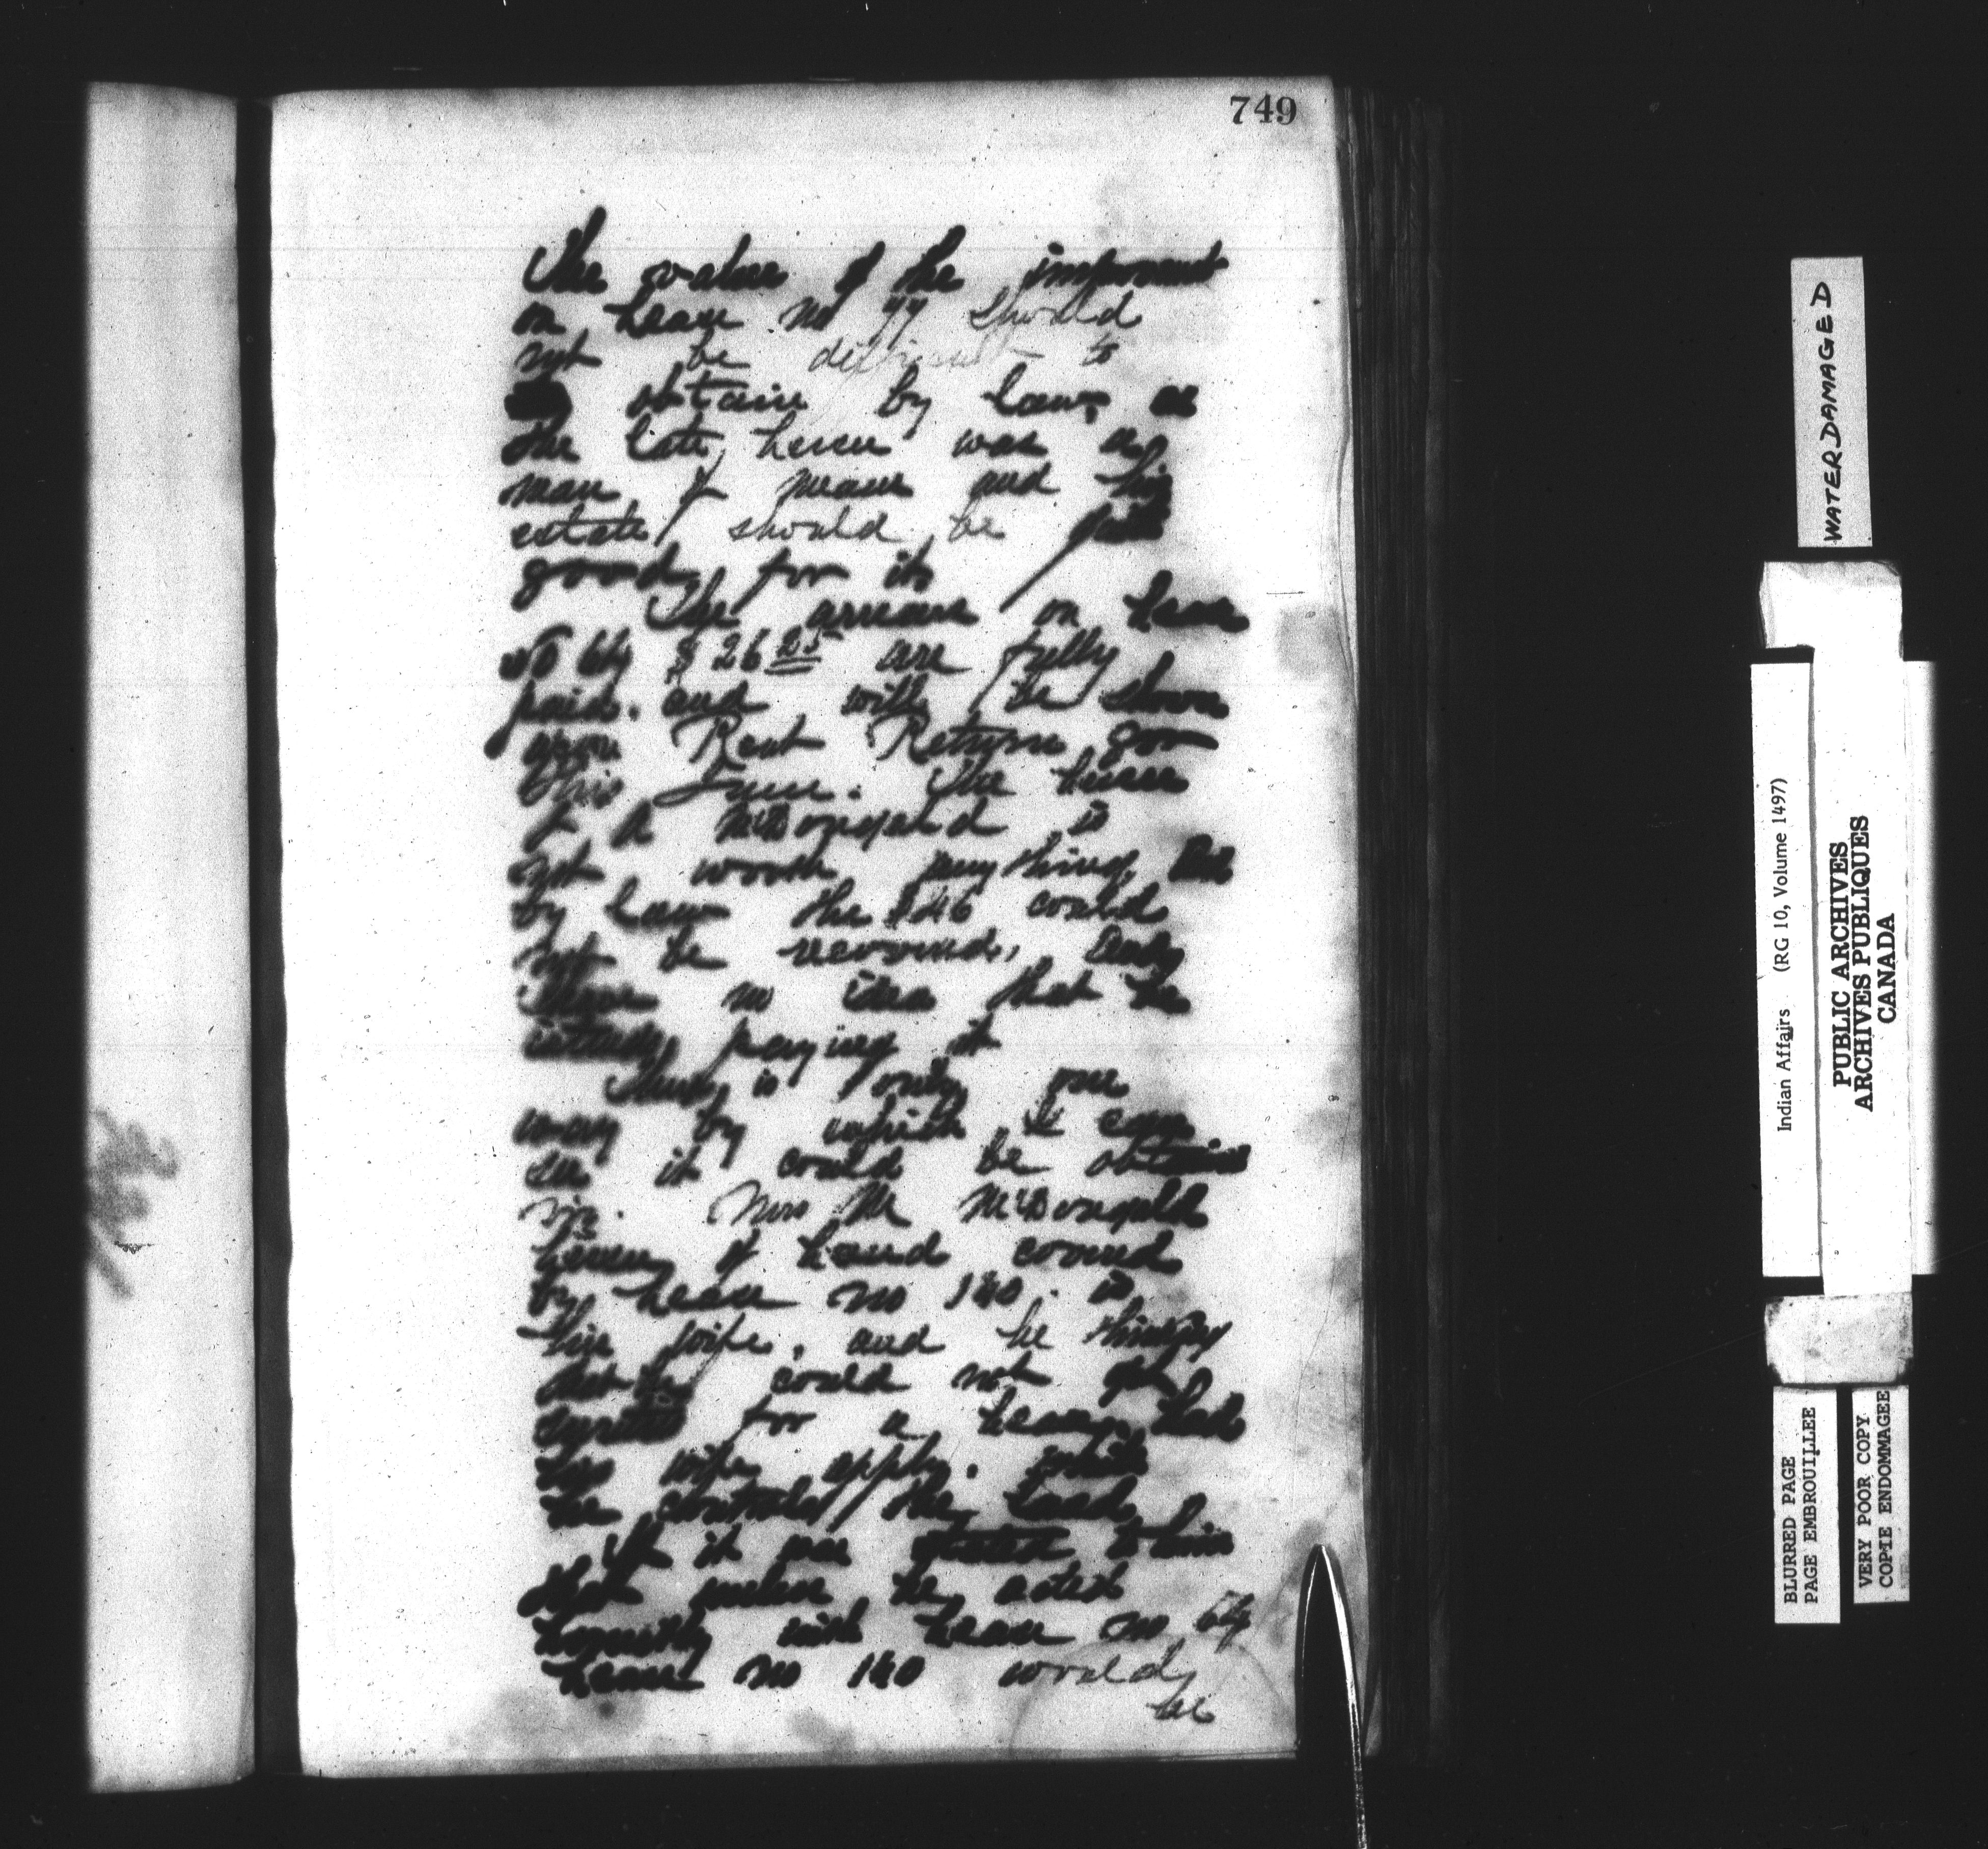 749
The value of the improvmt
on Lease No 77 should
not be difficult to
obtain by law, as
the late lessee was a
man of means and his
estate should be
good for it.
The arrears on Lease
No 64 $26 25 are fully
paid. and will be shown
upon Rent Return for
this June. The lessee
J A McDougald is
not worth anything, But
by law the $46 could
not be recovered, and
I have no idea that he
intends paying it
There is only one
way by which I can
see it could be obtained
viz. Mrs M McDougald
lessee of land covered
by Lease No 140. is
his wife, and he thinking
that he could not get
for a lease, had
his wife apply. while
he controls the land
If it was stated to him
that unless he acted
honestly with Lease No 64
Lease No 140 would
be
WATER DAMAGED
Indian Affairs (RG 10, Volume 1497)
PUBLIC ARCHIVES
ARCHIVES PUBLIQUES
CANADA
BLURRED PAGE
PAGE EMBROUILLEE
VERY POOR COPY
COPIE ENDOMMAGEE